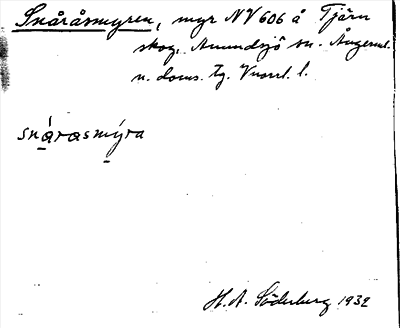 Snåråsmyren, myr NV 606 å Tjärn
skog, Anundsjö sn. Ångerml.
n. doms. Tg. Vnorrl. l.
snårasmýra
H. A. Söderberg 1932